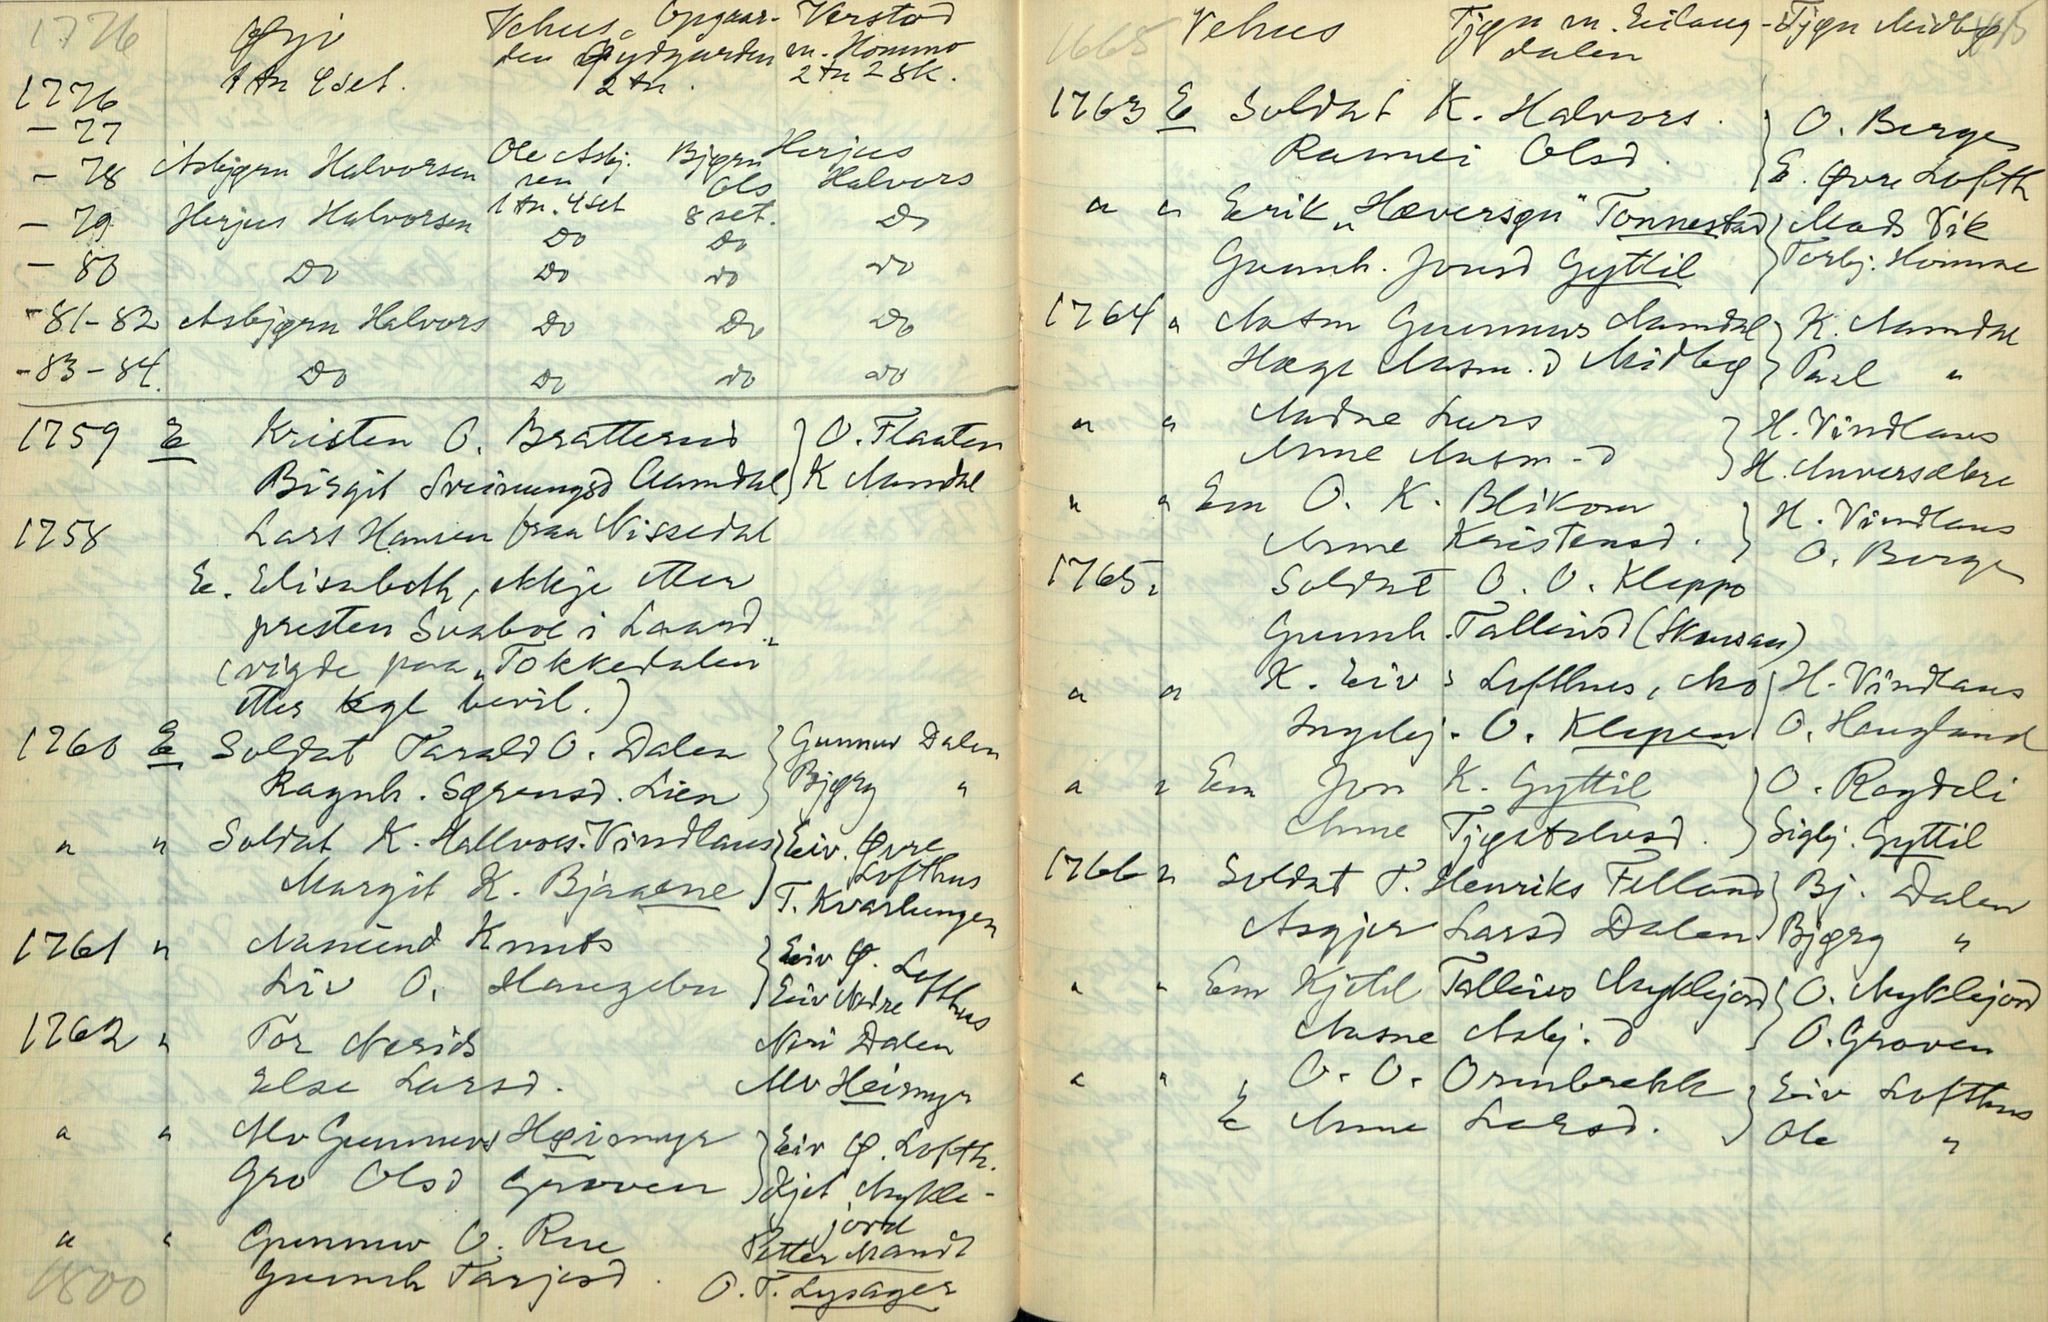 1776 Øyi Vehus, Opgaar- Verstad
den Øydgarden m. Hommo
1 tn 4 set. 2 tn. 2 tn 2 sk.
1776
- 77
- 78 Asbjørn Halvorsen Ole Asbj. Bjørn Herjus
sen Ols Halvors
1 tn. 4 set 8 set.
- 79 Herjus Halvorsen Do Do Do
- 80 Do Do Do Do
- 81-82 Asbjørn Halvors Do Do Do
- 83-84. Do Do Do Do
1759 E Kristen O. Bratterud } O. Flaaten
Birgit Sveinungsd Aamdal } K Aamdal
1758 Lars Hansen fraa Nissedal
E. Elisabeth, etter
presten i Laard
(vigde paa "Tokkedalen"
etter Kgl bevil.)
1760 E Soldat Tarald O. Dalen } Gunnuv Dalen
Ragnh. Sørensd. Lien } Bjørg "
" " Soldat K. Hallvors. Vindlaus } Eiv. Øvre
Lofthus
Margit K. Bjaaene } T. Kvarhungen
1761 " Aamund Knuts } Eiv Ø. Lofthus
Liv O. Haugebu } Eiv Nedre
1762 " Tor Nerids Neri Dalen
Else Larsd. Alv Heimyr
" " Alv Gunnuvs Høismyr } Eiv Ø. Lofth.
Gro Olsd Groven } Kjet Mykle-
jord
" " Gunnuv O. Rue Petter Mandt
Gunnh Tarjesd. O. T. Lysager
1800
1665 Vehus Tjøn m. Eilaug- Tjøn Midbø
dalen
1763 E Soldat K. Halvors. } O. Berge
Ramnei Olsd. } E. Øvre Lofth
" " Eirik "Hæversøn" Tonnestad } Mads Vik
Gunnh. Jonsd Gyttil } Torbj. Homme
1764 " Aasm Gunnuvs Aamdal } K. Aamdal
Hæge Aasm.d Midbø } Paal "
" " Aadne Lars } H. Vindlaus
Anne Aasm-d } H.
" " Em O. K. Blikom } H. Vindlaus
Anne Kristensd. } O. Berge
1765 " Soldat O. O. Kleppo
Gunnh. Talleivsd (Skausau)
" " K. Eivs Lofthus, Mo } H. Vindlaus
Ingebj. O. Klepen } O. Haugland
" " Em Jon K. Gyttil } O. Rogdeli
Anne Tjøstolvsd. } Sigbj. Gyttil
1766 " Soldat T. Henriks Felland } Bj. Dalen
Asgjer Larsd Dalen } Bjørg "
" " Em Kjetil Talleivs Myklejord } O. Myklejord
Aasne Asbj.d } O. Groven
" " " O. O. Ormbrekk } Eiv Lofthus
E Anne Larsd. } Ole "